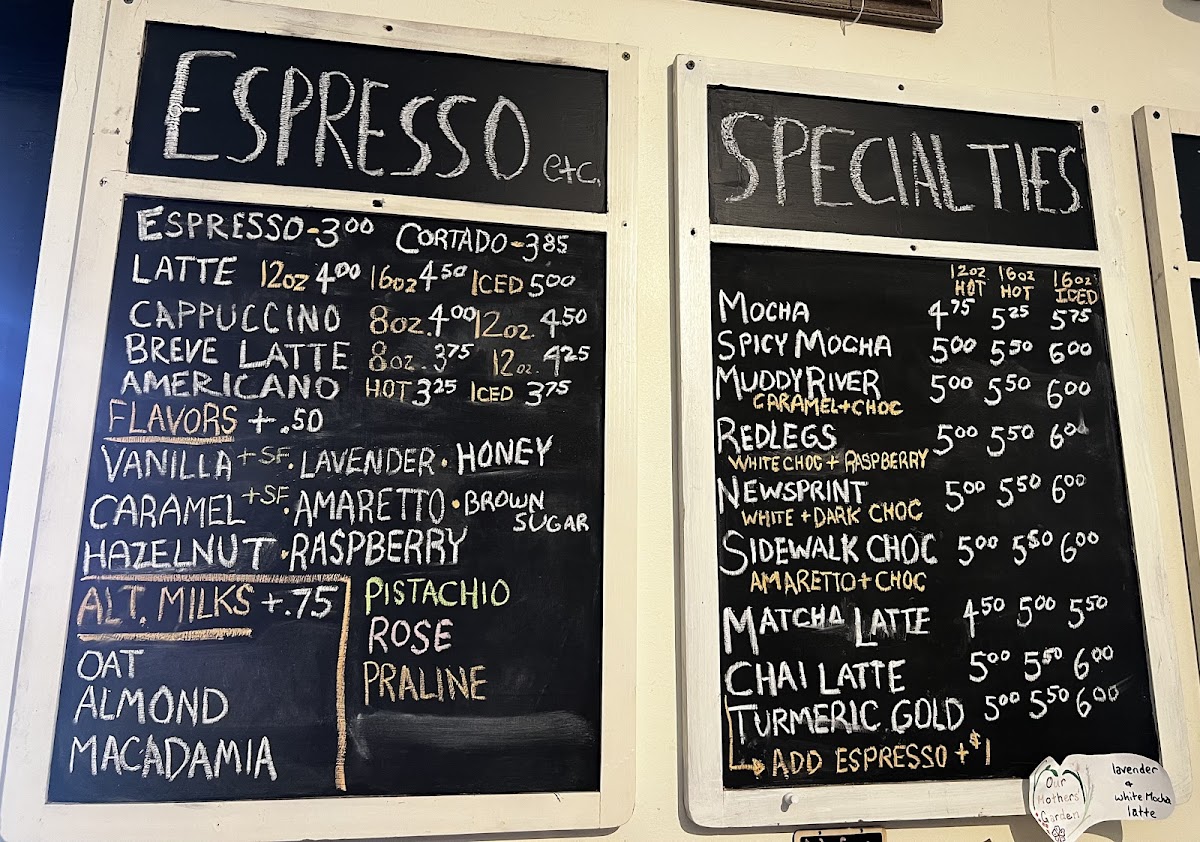 ESPRESSO etc.
ESPRESSO-3.00 CORTADO-3.85
LATTE 12oz 4.00 16oz 4.50 ICED 5.00
CAPPUCCINO 8oz. 4.00 12oz. 4.50
BREVE LATTE 8oz. 3.75 12oz. 4.25
AMERICANO HOT 3.25 ICED 3.75
FLAVORS +.50
VANILLA +SF. LAVENDER · HONEY
CARAMEL +SF. AMARETTO · BROWN SUGAR
HAZELNUT · RASPBERRY
PISTACHIO
ROSE
PRALINE
ALT. MILKS +.75
OAT
ALMOND
MACADAMIA
SPECIALTIES
12oz HOT 16oz HOT 16oz ICED
MOCHA 4.75 5.25 5.75
SPICY MOCHA 5.00 5.50 6.00
MUDDY RIVER 5.00 5.50 6.00
CARAMEL+CHOC
REDLEGS 5.00 5.50 6.00
WHITE CHOC + RASPBERRY
NEWSPRINT 5.00 5.50 6.00
WHITE + DARK CHOC
SIDEWALK CHOC 5.00 5.50 6.00
AMARETTO + CHOC
MATCHA LATTE 4.50 5.00 5.50
CHAI LATTE 5.00 5.50 6.00
TURMERIC GOLD 5.00 5.50 6.00
ADD ESPRESSO +$1
Our
Mothers
Garden
lavender
+
white Mocha
latte